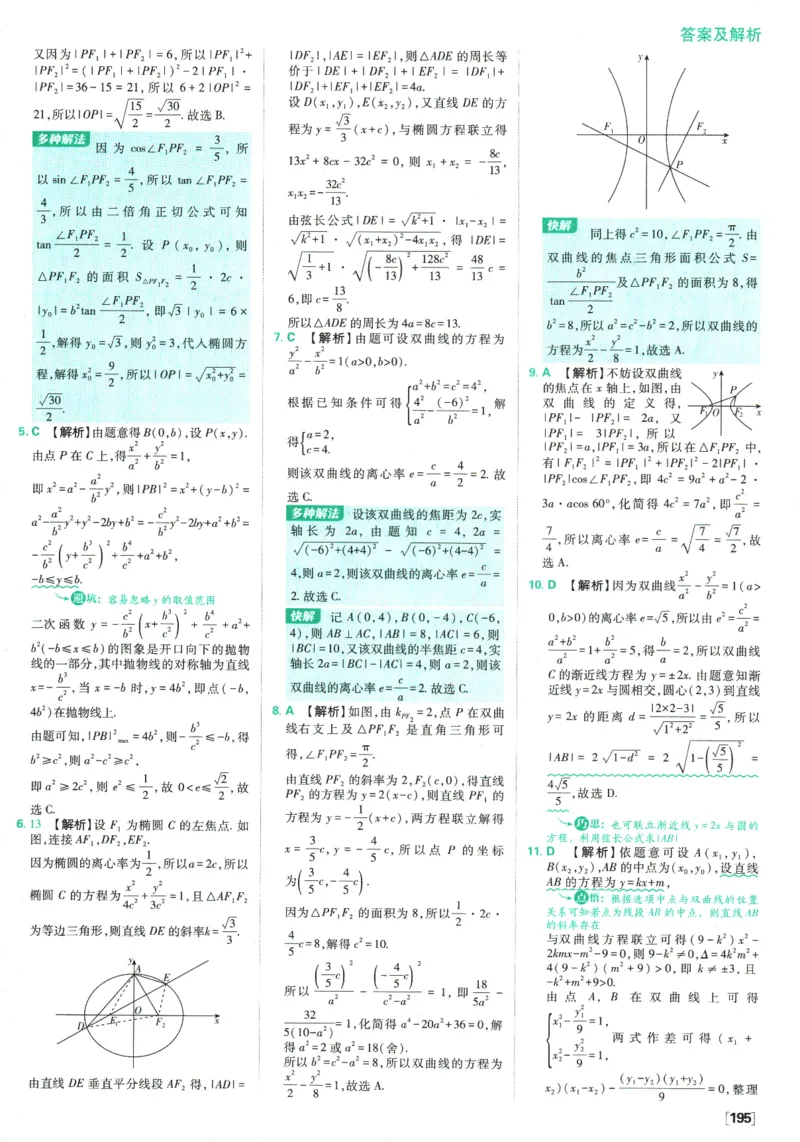 答案及解析
又因为|PF₁|+|PF₂|=6,所以|PF₁|²+
|PF₂|²=(|PF₁|+|PF₂|)²-2|PF₁|·
|PF₂|=36-15=21,所以 6+2|OP|²=
21,所以|OP|=√(15/2)=√30/2.故选 B.
多种解法 因为 cos∠F₁PF₂ = 3/5,所
以 sin∠F₁PF₂=4/5,所以 tan∠F₁PF₂=
4/3,所以由二倍角正切公式可知
tan(∠F₁PF₂/2) = 1/2. 设 P(x₀, y₀),则
△PF₁F₂ 的面积 S△PF₁F₂ = 1/2 · 2c ·
|y₀|=b²tan(∠F₁PF₂/2),即 3|y₀|=6×
1/2,解得 y₀=√3,则 y₀²=3,代入椭圆方
程,解得 x₀²=9/2,所以|OP|=√(x₀²+y₀²)=
√30/2.
5.C 【解析】由题意得 B(0,b),设 P(x,y).
由点 P 在 C 上,得 x²/a²+y²/b²=1,
即 x²=a²-(a²/b²)y²,则|PB|²=x²+(y-b)²=
a²-(a²/b²)y²+y²-2by+b²=-(c²/b²)y²-2by+a²+b²=
-(c²/b²)(y+b³/c²)²+b⁴/c²+a²+b²,
-b≤y≤b.
避坑:容易忽略 y 的取值范围
二次函数 y=-(c²/b²)(x+b³/c²)²+b⁴/c²+a²+
b²(-b≤x≤b)的图象是开口向下的抛物
线的一部分,其中抛物线的对称轴为直线
x=-b³/c²,当 x=-b 时,y=4b²,即点(-b,
4b²)在抛物线上.
由题可知,|PB|²max=4b²,则-b³/c²≤-b,得
b²≥c²,则 a²-c²≥c²,
即 a²≥2c²,则 e²≤1/2,故 0<e≤√2/2,故
选 C.
6.13 【解析】设 F₁ 为椭圆 C 的左焦点. 如
图,连接 AF₁,DF₂,EF₂.
因为椭圆的离心率为1/2,所以 a=2c,所以
椭圆 C 的方程为x²/4c²+y²/3c²=1,且△AF₁F₂
为等边三角形,则直线 DE 的斜率 k=√3/3.
y
A
E
D
F₁
O
F₂
x
由直线 DE 垂直平分线段 AF₂ 得,|AD|=
|DF₂|,|AE|=|EF₂|,则△ADE 的周长等
价于|DE|+|DF₂|+|EF₂|=|DF₁|+
|DF₂|+|EF₁|+|EF₂|=4a.
设 D(x₁,y₁),E(x₂,y₂),又直线 DE 的方
程为 y=√3/3(x+c),与椭圆方程联立得
13x²+8cx-32c²=0,则 x₁+x₂=-8c/13,
x₁x₂=-32c²/13.
由弦长公式|DE|=√(k²+1)·|x₁-x₂|=
√(k²+1)·√((x₁+x₂)²-4x₁x₂),得|DE|=
√(1/3+1)·√((-8c/13)²+128c²/13)=48/13c=
6,即 c=13/8.
所以△ADE 的周长为 4a=8c=13.
7.C 【解析】由题可设双曲线的方程为
y²/a²-x²/b²=1(a>0,b>0).
根据已知条件可得{a²+b²=c²=4², 4²/a²-(-6)²/b²=1, 解
得{a=2, c=4.
则该双曲线的离心率 e=c/a=4/2=2. 故
选 C.
多种解法 设该双曲线的焦距为 2c,实
轴长为 2a,由题知 c=4,2a=
√((-6)²+(4+4)²)-√((-6)²+(4-4)²)=
4,则 a=2,则该双曲线的离心率 e=c/a=
2.故选 C.
快解 记 A(0,4),B(0,-4),C(-6,
4),则 AB⊥AC,|AB|=8,|AC|=6,则
|BC|=10,又该双曲线的半焦距 c=4,实
轴长 2a=|BC|-|AC|=4,则 a=2,则该
双曲线的离心率 e=c/a=2.故选 C.
8.A 【解析】如图,由 kPF₂=2,点 P 在双曲
线右支上及△PF₁F₂ 是直角三角形可
得,∠F₁PF₂=π/2.
由直线 PF₂ 的斜率为 2,F₂(c,0),得直线
PF₂ 的方程为 y=2(x-c),则直线 PF₁ 的
方程为 y=-1/2(x+c),两方程联立解得
x=3/5c,y=-4/5c,所以点 P 的坐标
为(3/5c,-4/5c).
因为△PF₁F₂ 的面积为 8,所以1/2·2c·
4/5c=8,解得 c²=10.
所以(3/5c)²/a²-(-4/5c)²/(c²-a²)=1,即18/5a²-
32/5(10-a²)=1,化简得 a⁴-20a²+36=0,解
得 a²=2 或 a²=18(舍).
所以 b²=c²-a²=8,所以双曲线的方程为
x²/2-y²/8=1,故选 A.
y
F₁
O
F₂
x
P
快解 同上得 c²=10,∠F₁PF₂=π/2.由
双曲线的焦点三角形面积公式 S=
b²/tan(∠F₁PF₂/2)及△PF₁F₂ 的面积为 8,得
b²=8,所以 a²=c²-b²=2,所以双曲线的
方程为x²/2-y²/8=1,故选 A.
9.A 【解析】不妨设双曲线
的焦点在 x 轴上,如图,由
双曲线的定义得,
|PF₁|-|PF₂|=2a,又
|PF₁|=3|PF₂|,所以
y
P
F₁
O
F₂
x
|PF₂|=a,|PF₁|=3a,所以在△F₁PF₂ 中,
有|F₁F₂|²=|PF₁|²+|PF₂|²-2|PF₁|·
|PF₂|cos∠F₁PF₂,即 4c²=9a²+a²-2·
3a·acos 60°,化简得 4c²=7a²,即c²/a²=
7/4,所以离心率 e=c/a=√(7/4)=√7/2,故
选 A.
10.D 【解析】因为双曲线x²/a²-y²/b²=1(a>
0,b>0)的离心率 e=√5,所以由 e²=c²/a²=
(a²+b²)/a²=1+b²/a²=5,得b/a=2,所以双曲线
C 的渐近线方程为 y=±2x. 由题意知渐
近线 y=2x 与圆相交,圆心(2,3)到直线
y=2x 的距离 d=|2×2-3|/√(1²+2²)=√5/5,所以
|AB|=2√(1-d²)=2√(1-(√5/5)²)=
4√5/5,故选 D.
巧思:也可联立渐近线 y=2x 与圆的
方程,利用弦长公式求|AB|
11.D 【解析】依题意可设 A(x₁,y₁),
B(x₂,y₂),AB 的中点为(x₀,y₀),设直线
AB 的方程为 y=kx+m,
点悟:根据选项中点与双曲线的位置
关系可知若点为线段 AB 的中点,则直线 AB
的斜率存在
与双曲线方程联立可得(9-k²)x²-
2kmx-m²-9=0,则 9-k²≠0,Δ=4k²m²+
4(9-k²)(m²+9)>0,即 k≠±3,且
-k²+m²+9>0.
由点 A,B 在双曲线上可得
{x₁²-y₁²/9=1, x₂²-y₂²/9=1, 两式作差可得(x₁+
x₂)(x₁-x₂)-(y₁-y₂)(y₁+y₂)/9=0,整理
[195]